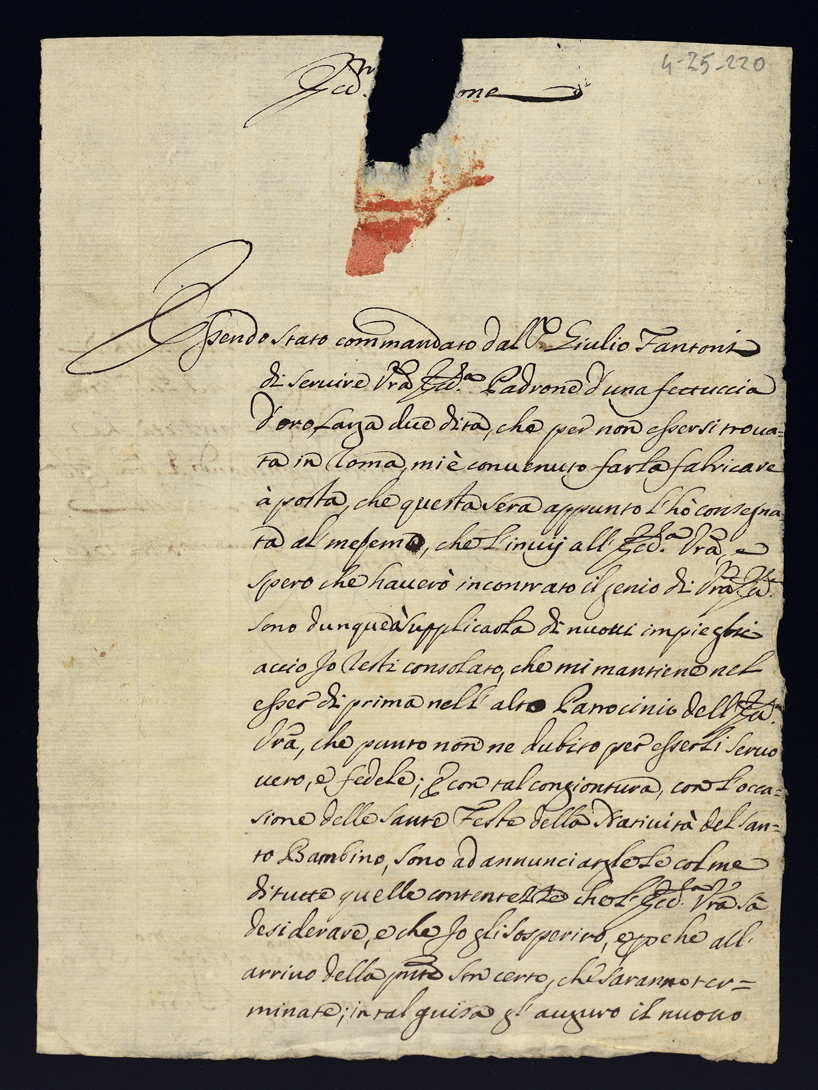 4-25-220
Ecc.mo
one
Essendo stato commandato dal Sr. Giulio Fantoni
di seruire Vrã Ecc.a Padrone d'una fettuccia
d'oro larga due dita, che per non essersi troua=
ta in Roma, mi è conuenuto farla fabricare
à posta, che questa sera appunto l'hò consegna=
ta al mesemo, che l'inuij all' Ecc.a Vrã, e
spero che hauerò incontrato il genio di Vrã Ecc.a
sono dunque à supplicarla di nuoui impieghi
accio Jo resti consolato, che mi mantiene nel
esser di prima nell' alto Patrocinio dell' Ecc.a
Vrã, che punto non ne dubito per esserli seruo
uero, e fedele; E con tal congiontura, con l'occa=
sione delle sante Feste della Natiuità del San=
to Bambino, sono ad annunciargle le colme
di tutte quelle contentezze che l' Ecc.a Vrã sà
desiderare, e che Jo gli sosperiro, e poche all'
arriuo della pñte son certo, che saranno ter=
minate; in tal guisa gl' auguro il nuouo